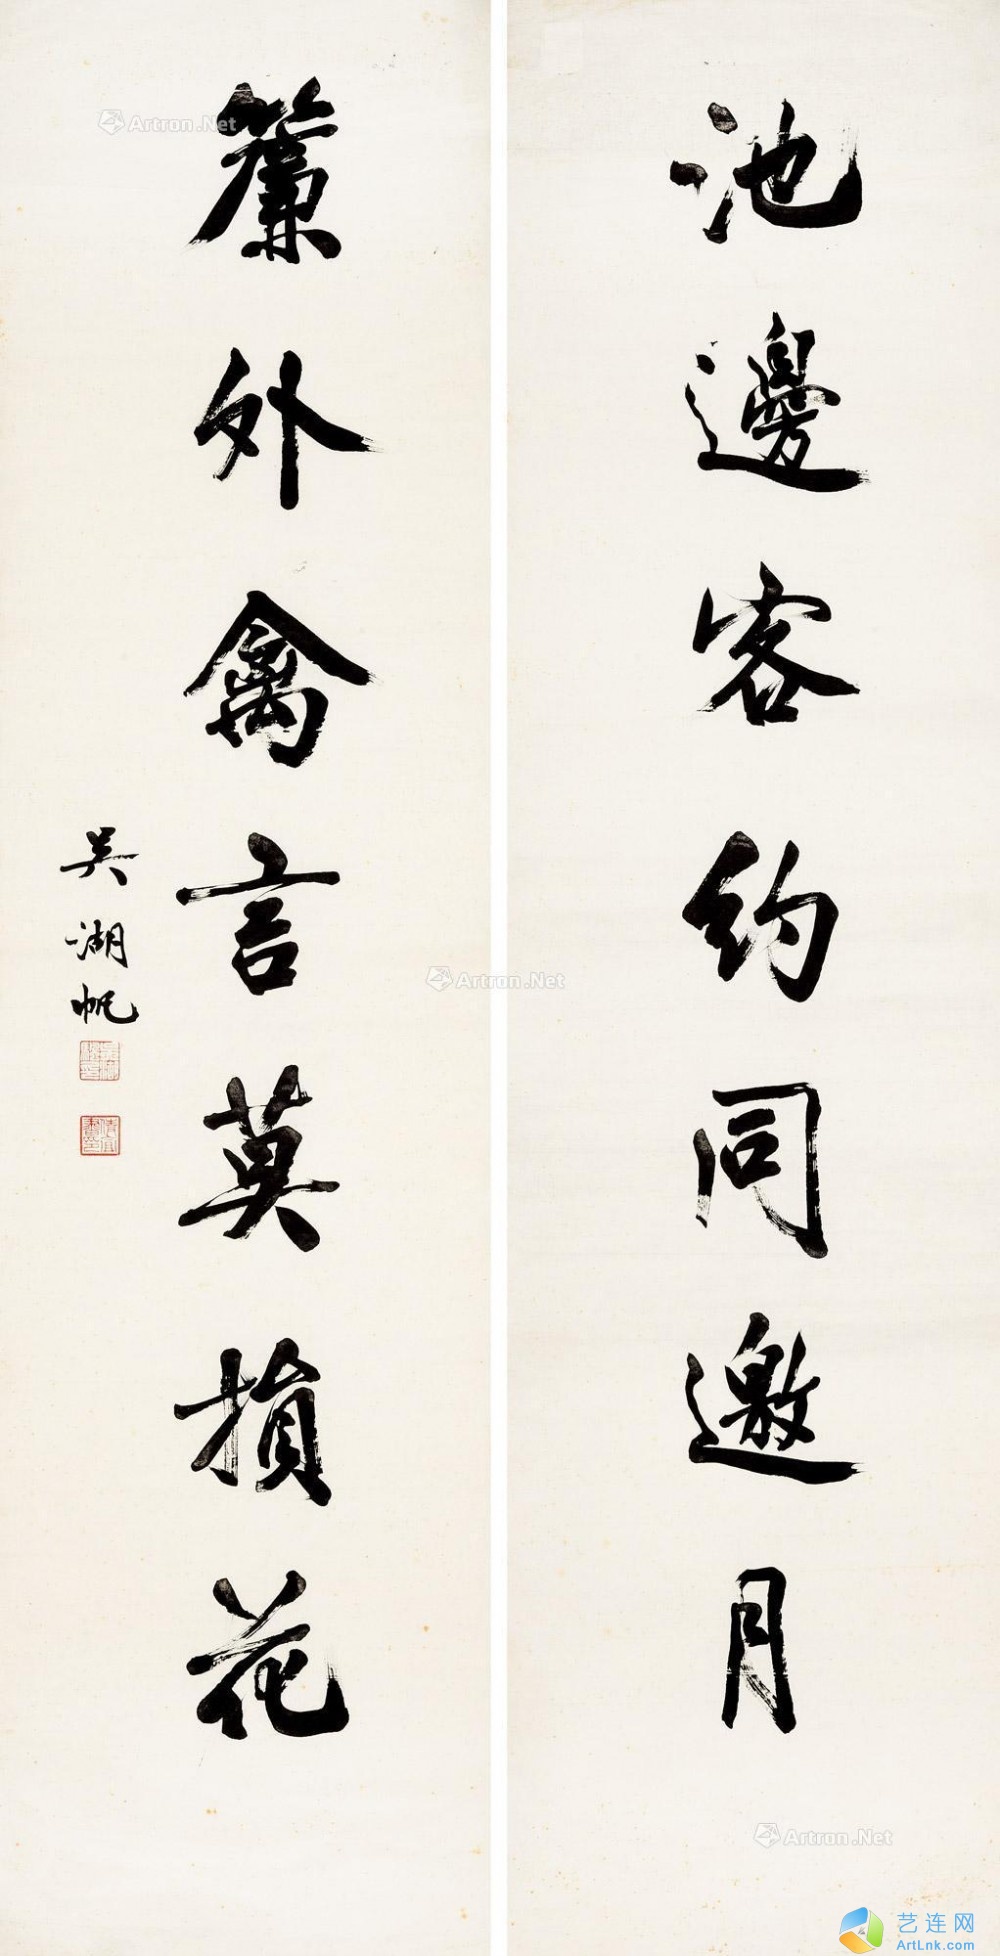 池邊客約同邀月
簾外禽言莫損花
吴湖帆
Artron.Net
Artron.Net
Artron.Net
Artron.Net
艺连网
ArtLnk.com